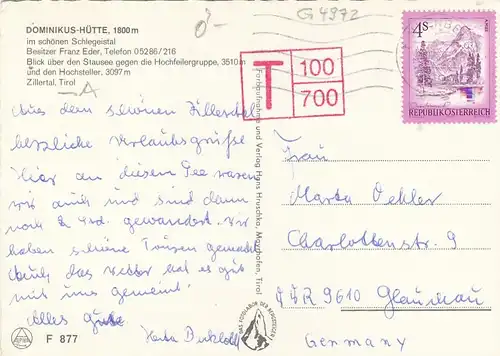 DOMINIKUS-HÜTTE, 1800m
im schönen Schlegeistal
Besitzer Franz Eder, Telefon 05286/216
Blick über den Stausee gegen die Hochfeilergruppe, 3510m
und den Hochsteller, 3097m
Zillertal, Tirol
G 4372
T 100
700
4S
REPUBLIK ÖSTERREICH
Aus dem schönen Zillertal
herzliche Urlaubsgrüße
Hier an diesem See waren
wir auch und sind dann
noch 2 Std. gewandert. Wir
haben schöne Touren gemacht
Auch das Wetter hat es gut
mit uns gemeint.
Alles gute
Herta
F 877
Farbaufnahme und Verlag Hans Hruschka, Mayrhofen, Tirol
DAS EDELWEISS DER BERGSTEIGER
Frau
Marta Oehler
Charlottenstr. 9
DDR 9610 Glauchau
Germany